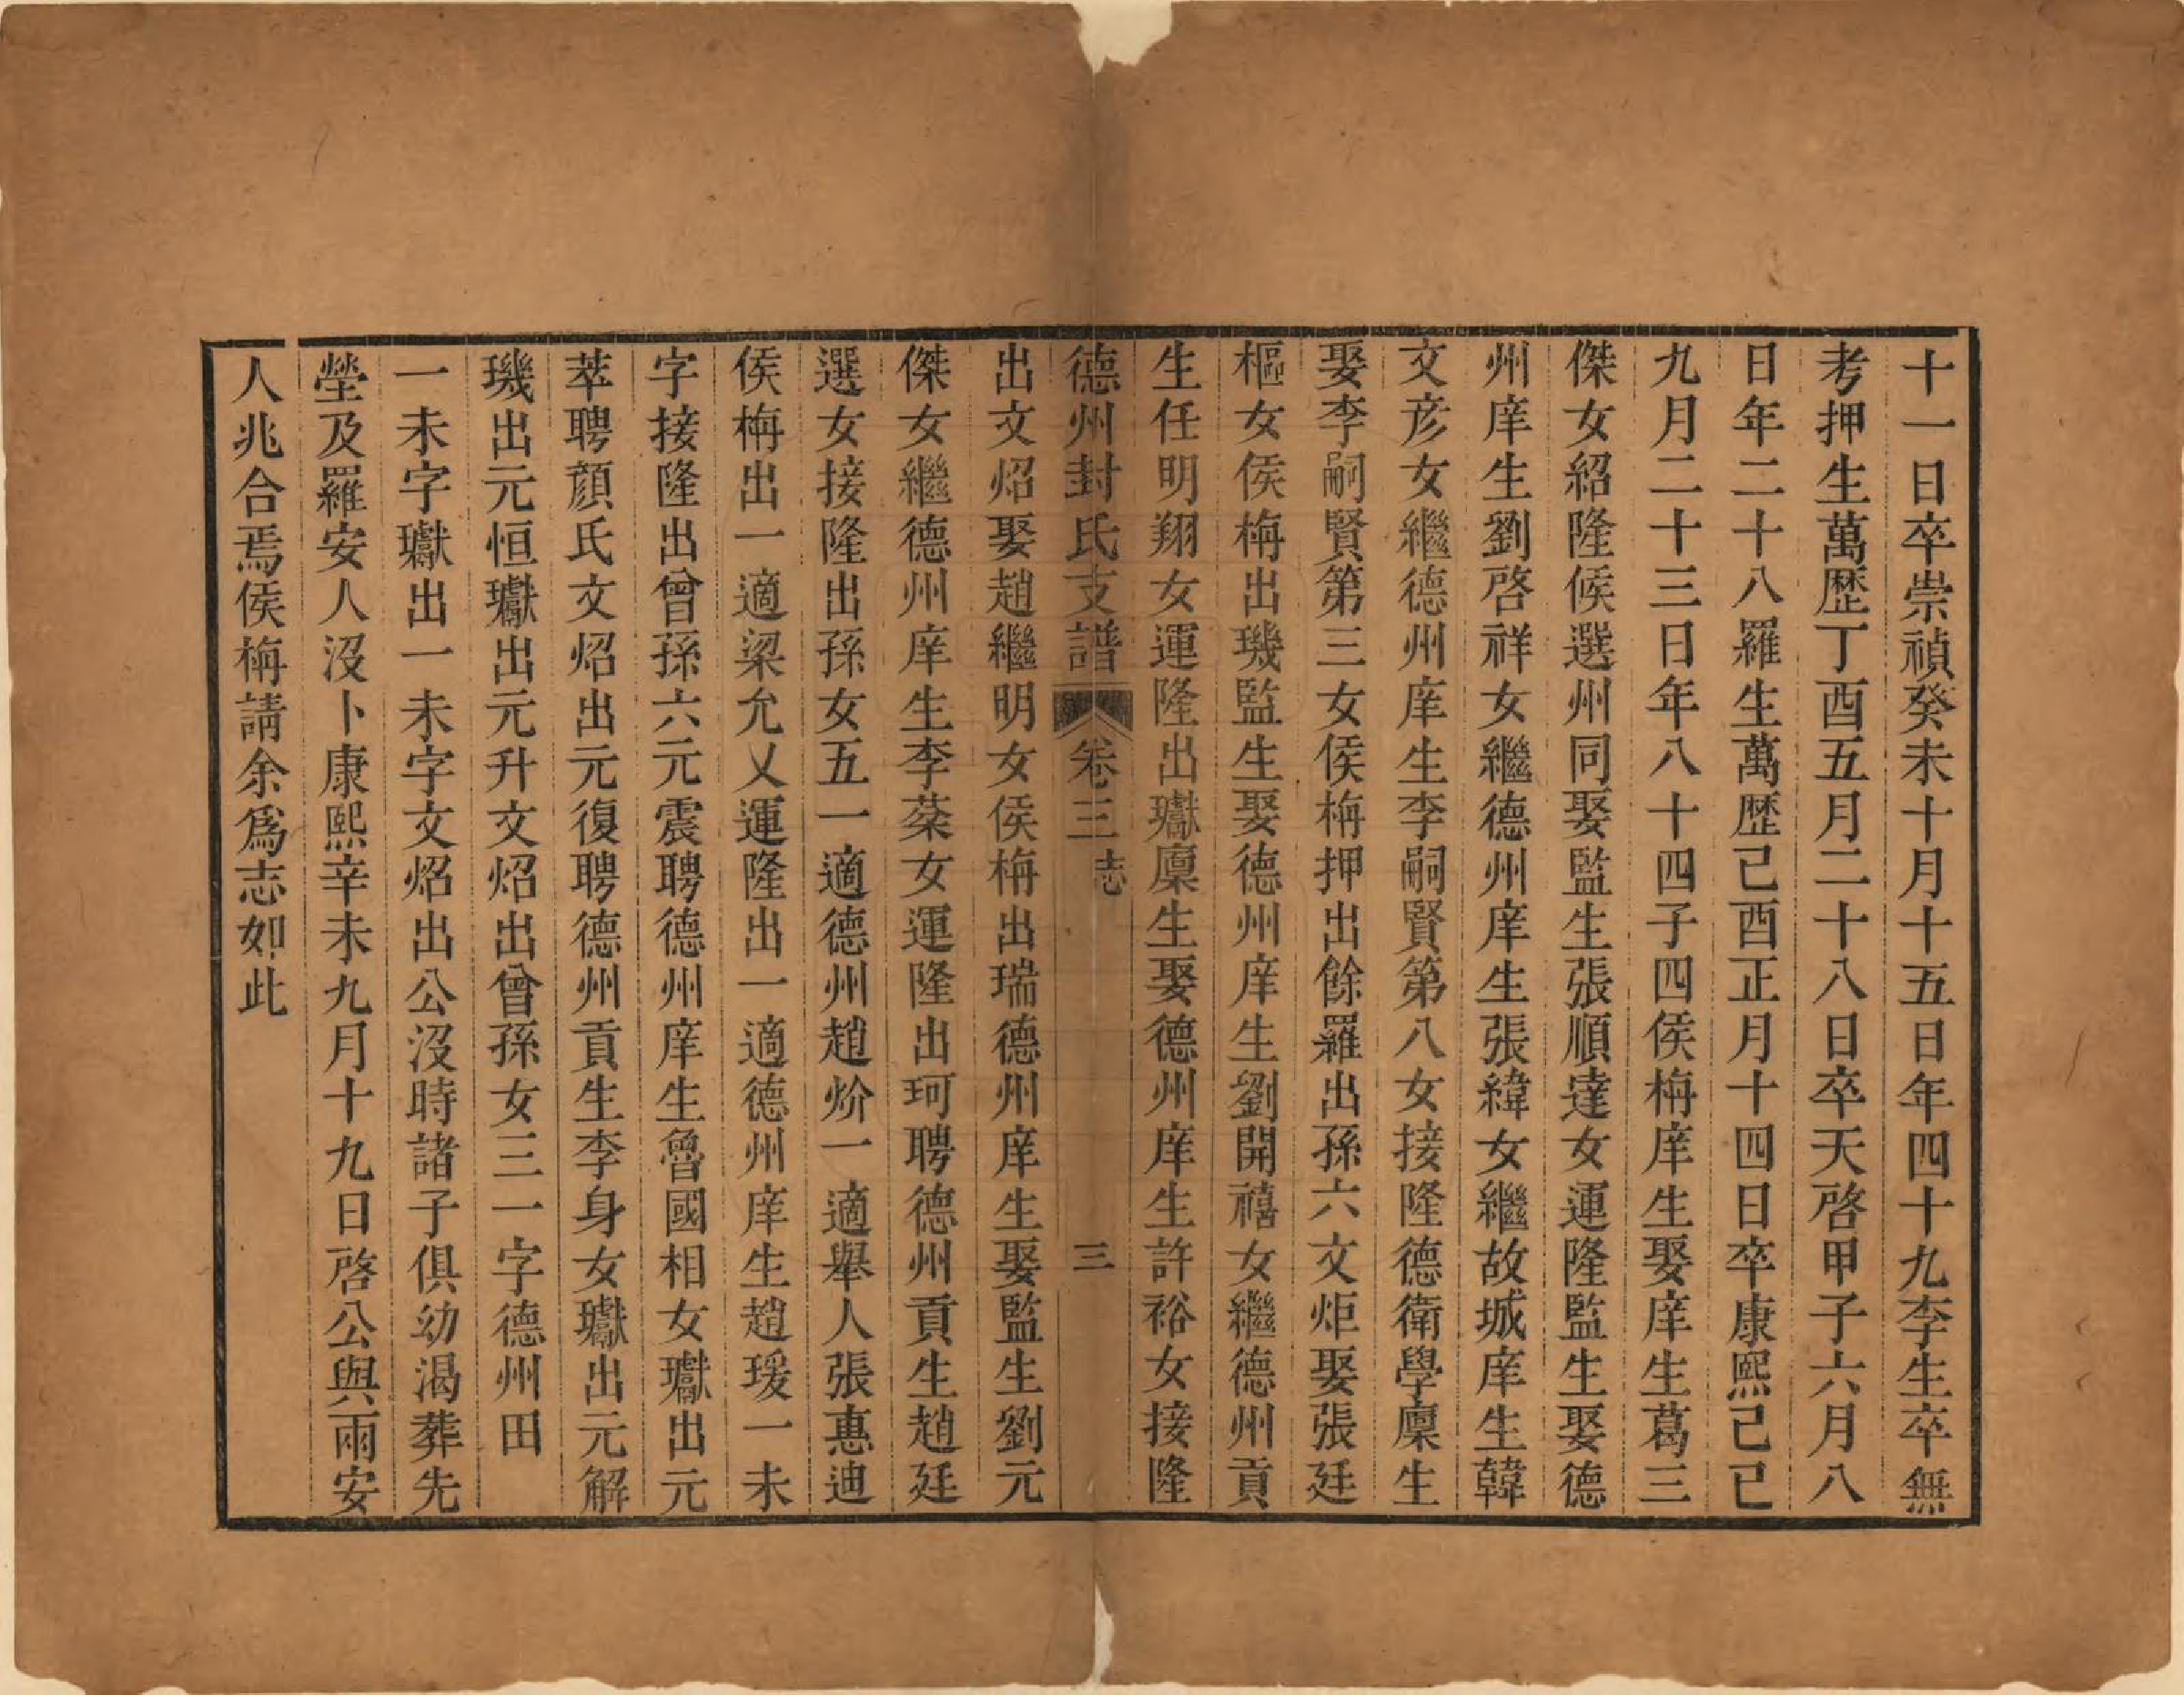 十一日卒崇禎癸未十月十五日年四十九李生卒無
考押生萬歷丁酉五月二十八日卒天啓甲子六月八
日年二十八羅生萬歷己酉正月十四日卒康熙己巳
九月二十三日年八十四子四侯栴庠生娶庠生葛三
傑女紹隆候選州同娶監生張順達女運隆監生娶德
州庠生劉啓祥女繼德州庠生張緯女繼故城庠生韓
文彥女繼德州庠生李嗣賢第八女接隆德衛學廩生
娶李嗣賢第三女侯栴押出餘羅出孫六文炬娶張廷
樞女侯栴出璣監生娶德州庠生劉開禧女繼德州貢
生任明翔女運隆出瓛廩生娶德州庠生許裕女接隆
德州封氏支譜 卷三 志 三
出文炤娶趙繼明女侯栴出瑞德州庠生娶監生劉元
傑女繼德州庠生李蘂女運隆出珂聘德州貢生趙廷
選女接隆出孫女五一適德州趙炌一適舉人張惠迪
侯栴出一適梁允乂運隆出一適德州庠生趙瑗一未
字接隆出曾孫六元震聘德州庠生魯國相女瓛出元
萃聘顏氏文炤出元復聘德州貢生李身女瓛出元解
璣出元恒瓛出元升文炤出曾孫女三一字德州田
一未字瓛出一未字文炤出公沒時諸子俱幼渴葬先
塋及羅安人沒卜康熙辛未九月十九日啓公與兩安
人兆合焉侯栴請余爲志如此